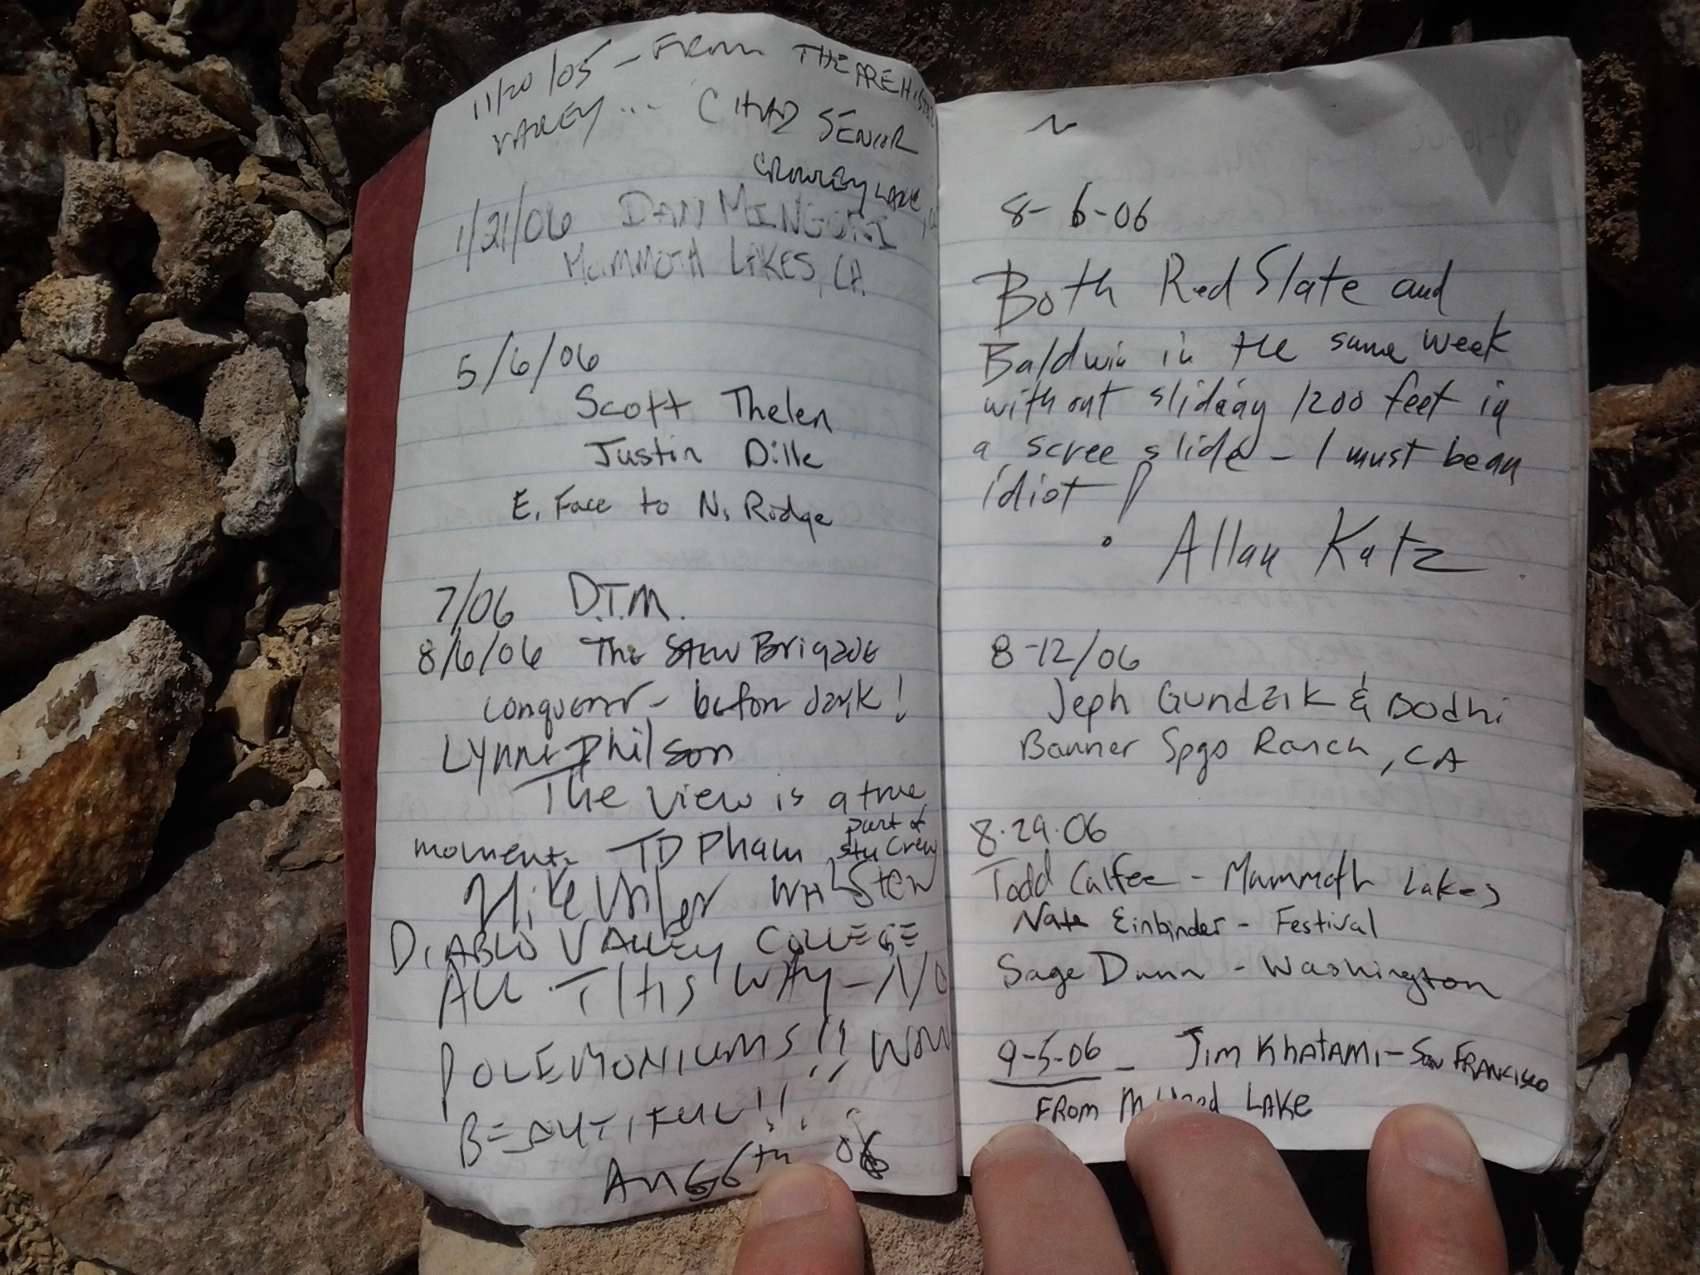 11/20/05 - FROM THE
VALLEY ... CHAD SENIOR
CROWLEY LAKE,
1/21/06 DAN MINGORI
MAMMOTH LAKES, CA
5/6/06
Scott Thelen
Justin Dille
E. Face to N. Ridge
7/06 D.T.M.
8/6/06 The Stew Brigade
conquerer - before dark!
Lynne Philson
The view is a true
moment. TD Pham part of
stu crew
Mike Stew
DIABLO VALLEY COLLEGE
ALL THIS WAY - NO
POLEMONIUMS!! WOW
BEAUTIFUL!!
AUG 6th 06
~
8-6-06
Both Red Slate and
Baldwin in the same week
without sliding 1200 feet in
a scree slide - I must be an
idiot!
Allan Katz
8-12/06
Jeph Gundzik & Bodhi
Banner Spgs Ranch, CA
8.29.06
Todd Calfee - Mammoth Lakes
Nate Einbinder - Festival
Sage Dunn - Washington
9-5-06 - Jim Khatami - San Francisco
FROM LAKE